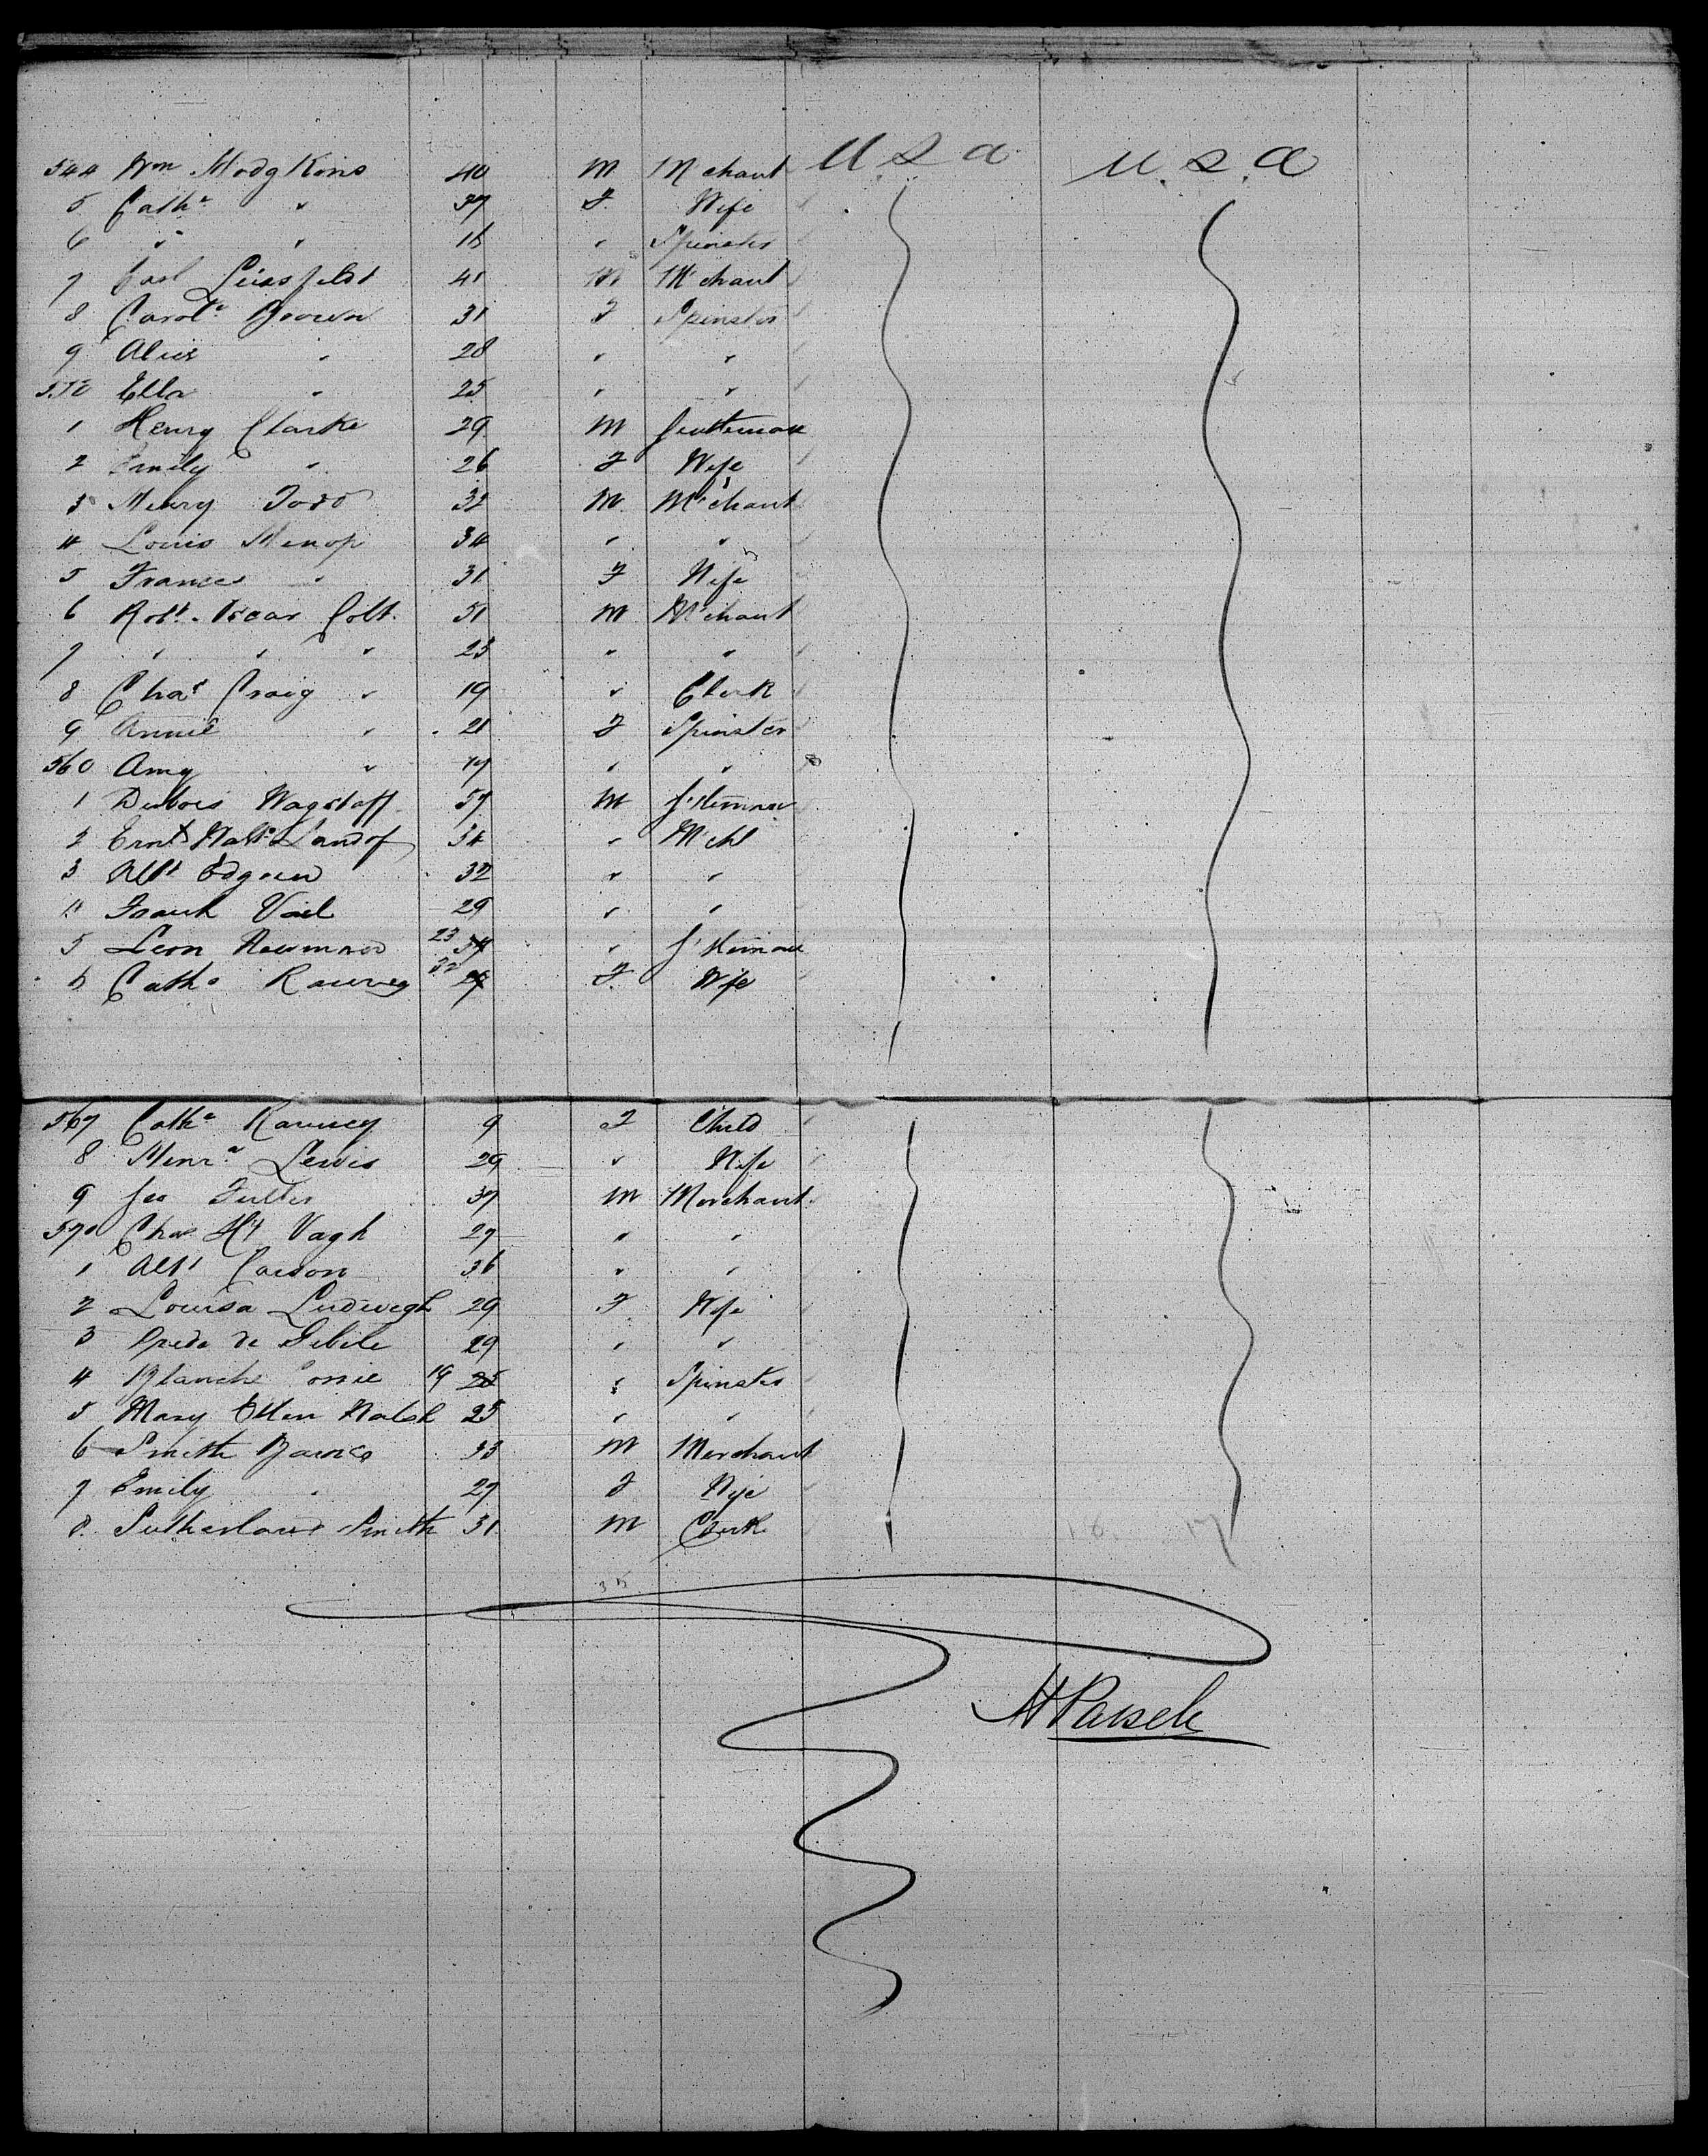 U.S.a U.S.a
544 Wm Hodgkins 40 M Mchant
5 Catha " 37 F Wife
6 " " 16 " Spinster
7 Carl 41 M Mchant
8 Carole Brown 31 F Spinster
9 Alice " 28 " "
550 Ella " 25 " "
1 Henry Clarke 29 M Gentleman
2 Emily " 26 F Wife
3 Henry Todd 32 M Mchant
4 Louis 34 " "
5 Frances " 31 F Wife
6 Robt Oscar Colt 51 M Mchant
7 " " " 23 " "
8 Chas Craig " 19 " Clerk
9 Annie " 21 F Spinster
560 Amy " 17 " "
1 Dubois Wagstaff 57 M G'tleman
2 Ernt Walt 34 " Mcht
3 Albt 32 " "
4 Frank Vail 29 " "
5 Leon 23 " G'tleman
6 Catha Ramsey F Wife
567 Catha Ramsey 9 F Child
8 Henra Lewis 29 " Wife
9 Geo Fuller 37 M Merchant
570 Chas Hy Vagh 27 " "
1 Albt Carson 36 " "
2 Louisa Ludwegh 29 F Wife
3 de 29 " "
4 Blanche 19 25 " Spinster
5 Mary Ellen Walsh 25 " "
6 Smith 33 M Merchant
7 Emily " 27 F Wife
8 Sutherland Smith 31 M Clerk
16 17
35